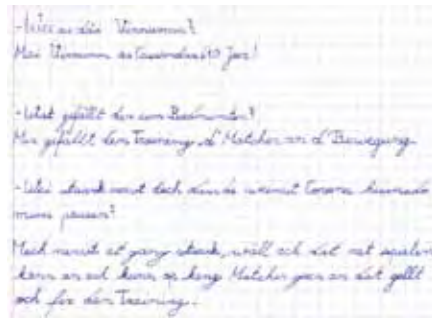 - Wéi as däi Virnumm?
Mäi Virnumm as Cassandra 10 Joer!
- Wat gefällt dir um Badminton?
Mir gefällt den Training, d'Matcher an d'Bewegung.
- Wéi staark nervt dech dass de weinst Corona hannendo
muss pausen?
Mech nervt et ganz staark, well ech dat net spalen
kann an ech kann op keng Matcher goen an dat gëllt
och fir den Training.